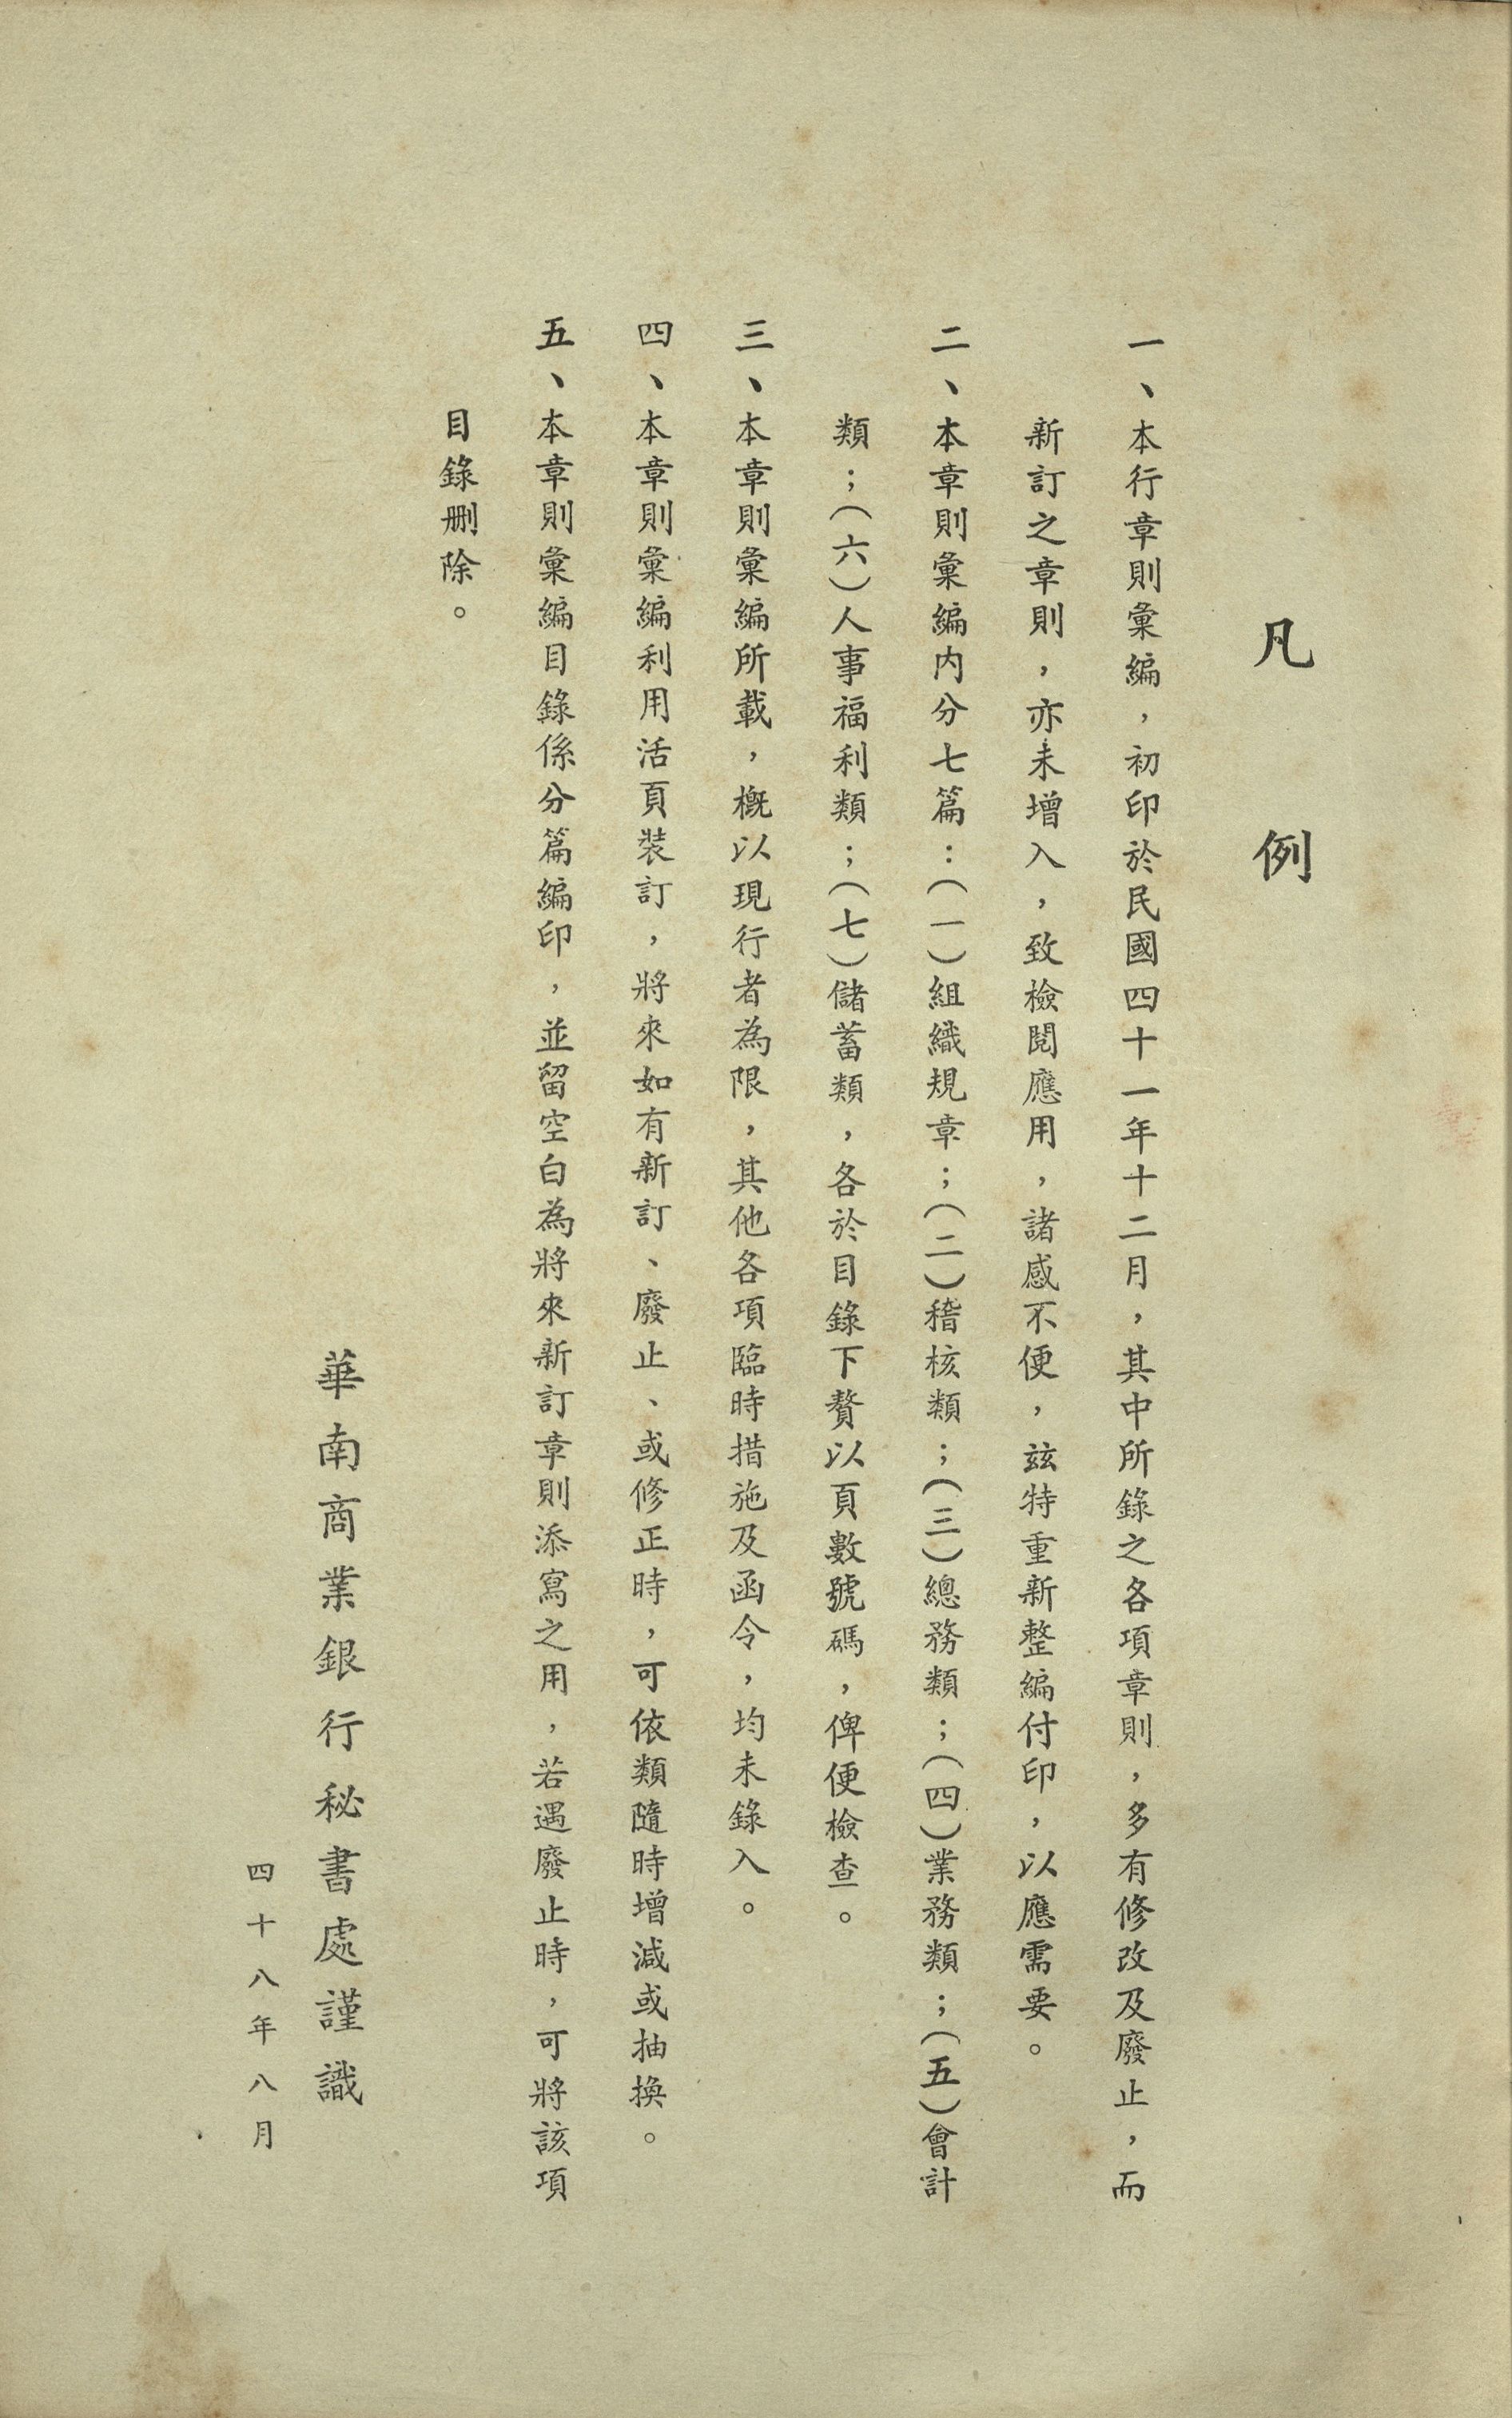 凡例
一、本行章則彙編，初印於民國四十一年十二月，其中所錄之各項章則，多有修改及廢止，而
新訂之章則，亦未增入，致檢閱應用，諸感不便，茲特重新整編付印，以應需要。
二、本章則彙編内分七篇：（一）組織規章；（二）稽核類；（三）總務類；（四）業務類；（五）會計
類；（六）人事福利類；（七）儲蓄類，各於目錄下贅以頁數號碼，俾便檢查。
三、本章則彙編所載，概以現行者為限，其他各項臨時措施及函令，均未錄入。
四、本章則彙編利用活頁裝訂，將來如有新訂、廢止、或修正時，可依類隨時增減或抽換。
五、本章則彙編目錄係分篇編印，並留空白為將來新訂章則添寫之用，若遇廢止時，可將該項
目錄刪除。
華南商業銀行秘書處謹識
四十八年八月